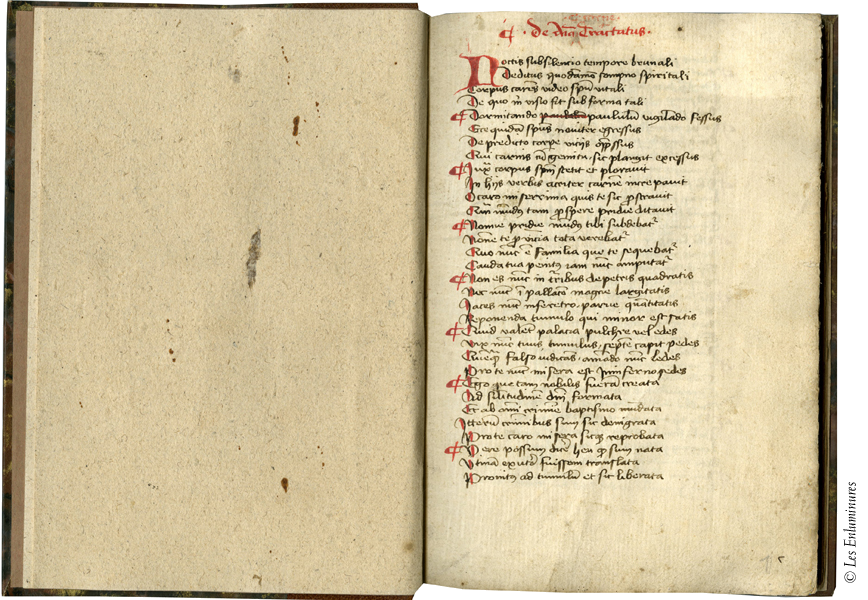 ¶ · De Aīa Tractatus ·
Noctis sub silencio tempore brumali
Deditus quodāmō sompno spiritali
Corpus carens video spm̄ vitali
De quo m̄ visio fit sub forma tali
Dormitando paululū vigilādo fessus
Ecce quidā spūs noviter egressus
De predicto corpe vicijs opp̄ssus
Qui carnis cū gemitu sic plangit excessus
Iuxta corpus spūs stetit et ploravit
In hijs verbis acriter carnē increpavit
O caro miserrima quis te sic prostravit
Quā mūdus tam prospere pridie ditavit
Nonne pridie mūdus tibi subdebat᷑
Nōne te provincia tota verebat᷑
Quo nūc ē familia que te sequebat᷑
Cauda tua penitus iam nūc amputat᷑
Non es nūc in turribus de petris quadratis
Nec nūc ī pallacio magne largitatis
Iaces nūc in feretro parve quātitatis
Reponenda tumulo qui minor est satis
Quid valēt palacia pulchre vel edes
Vix nūc tuus tumulus septē capit pedes
Quēquā falso iudicās amodo nūc ledes
Pro te nūc misera est in inferno sedes
Ego que tam nobilis fuerā creata
Ad silitudinē dn̄i formata
Et ab om̄i crimine baptismo mūdata
Iterum criminibus sum sic denigrata
Pro te caro misera sicque reprobata
Vere possum dicē heu quod sum nata
Utinā ex utero fuissem translata
Protinus ad tumulū et sic liberata
© Les Enluminures